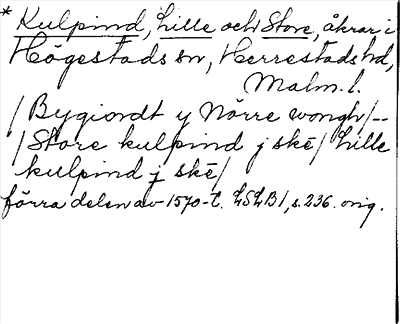 * Kulpind, Lille och Store, åkrar i
Högestads sn, Herrestads hd,
Malm. l.
/ Bygiordt y Nörre wongh/--
/ Store kulpind j skē / Lille
kulpind j skē /
förra delen av 1570-t. LSLB 1, s. 236. orig.